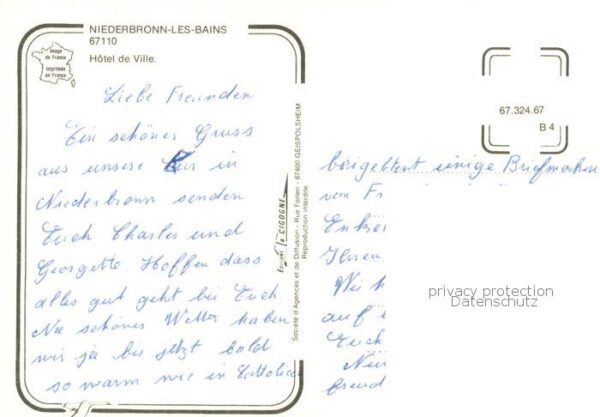 NIEDERBRONN-LES-BAINS
67110
Hôtel de Ville.
Image
de France
Imprimée
en France
Liebe Freunden
Ein schöner Gruss
aus unsere Kur in
Niederbronn senden
Euch Charles und
Georgette. Hoffen dass
alles gut geht bei Euch
Nie schönes Wetter haben
wir ja bis jetzt bald
so warm wie in
Editions la CIGOGNE
Société d'Agences et de Diffusion - Rue Forlen - 67400 GEISPOLSHEIM
Reproduction interdite
67.324.67
B 4
einige Briefmarken
von Fr
Ihnen
Wir h
auf
Euch
privacy protection
Datenschutz